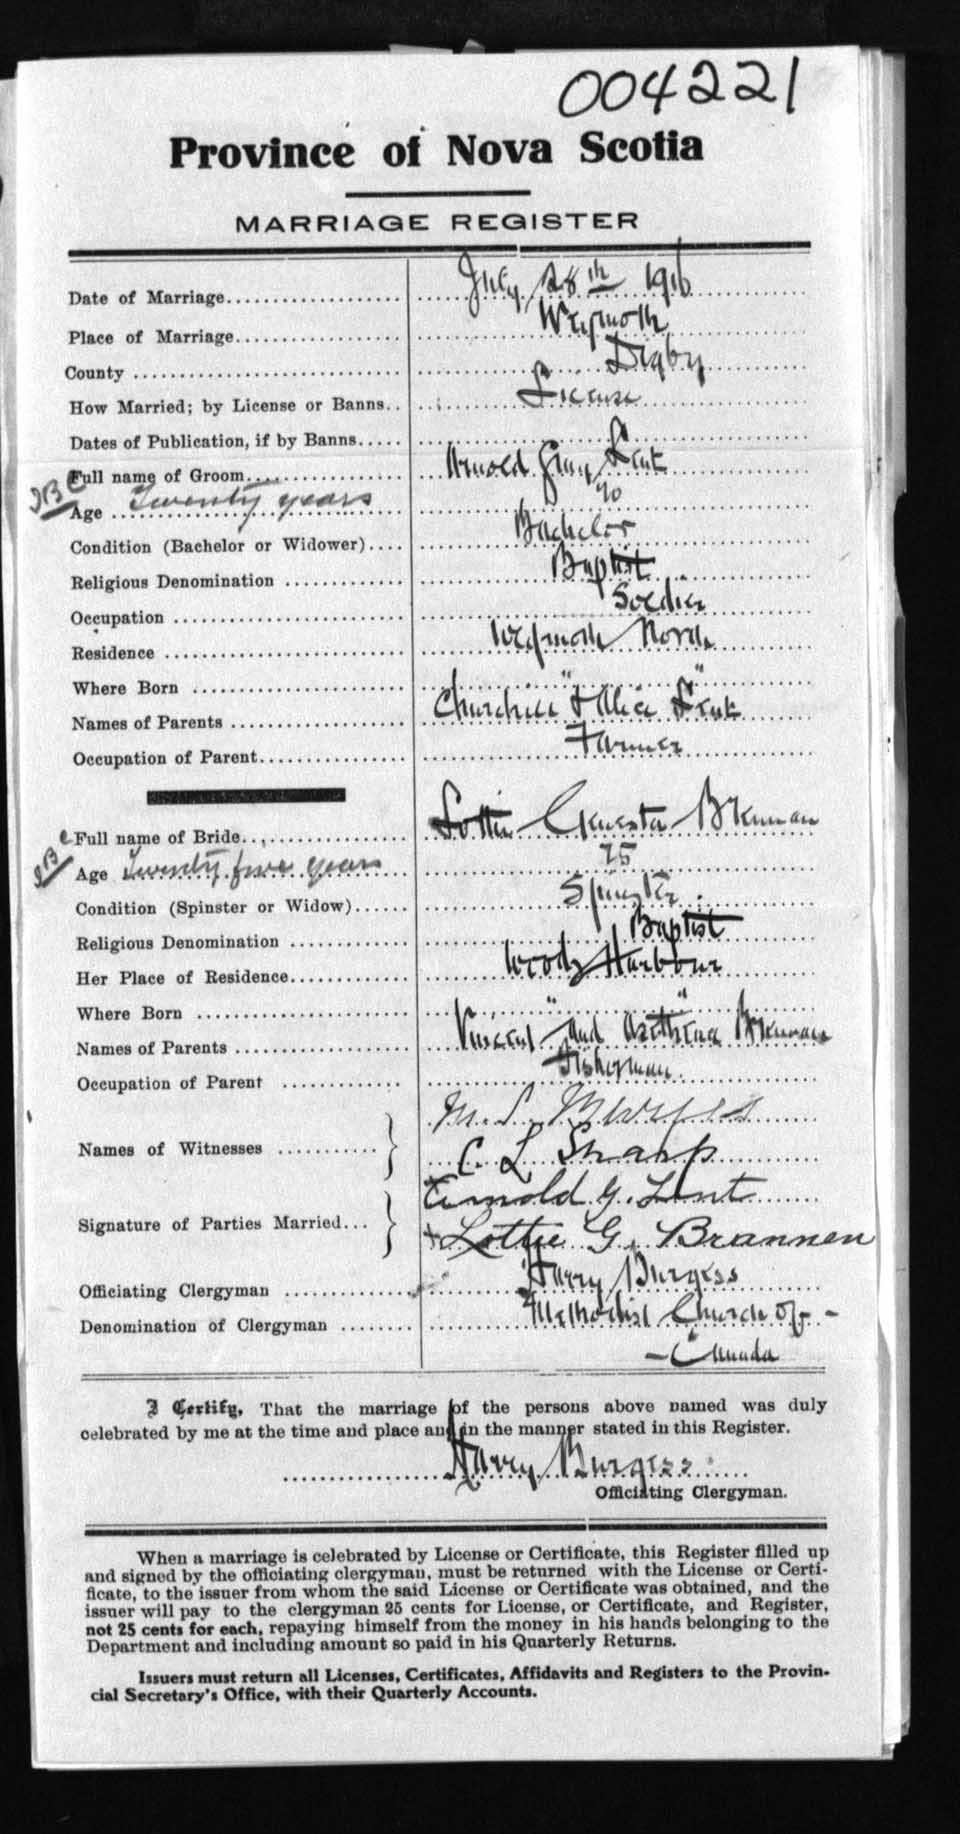 004221
Province of Nova Scotia
MARRIAGE REGISTER
Date of Marriage July 28th 1916
Place of Marriage Weymouth
County Digby
How Married; by License or Banns License
Dates of Publication, if by Banns
Full name of Groom Arnold Lent
Age Twenty years 20
Condition (Bachelor or Widower) Bachelor
Religious Denomination Baptist
Occupation Soldier
Residence Weymouth North
Where Born " "
Names of Parents Churchill & Alice Lent
Occupation of Parent Farmer
Full name of Bride Lottie Brennan
Age Twenty five years 25
Condition (Spinster or Widow) Spinster
Religious Denomination Baptist
Her Place of Residence Woods Harbour
Where Born " "
Names of Parents Vincent and Brennan
Occupation of Parent Fisherman
Names of Witnesses M. S. Burgess
C L Sharp
Signature of Parties Married Arnold G. Lent
+ Lottie G. Brannen
Officiating Clergyman Harry Burgess
Denomination of Clergyman Methodist Church of -
- Canada
I Certify, That the marriage of the persons above named was duly
celebrated by me at the time and place and in the manner stated in this Register.
Harry Burgess
Officiating Clergyman.
When a marriage is celebrated by License or Certificate, this Register filled up
and signed by the officiating clergyman, must be returned with the License or Certi-
ficate, to the issuer from whom the said License or Certificate was obtained, and the
issuer will pay to the clergyman 25 cents for License, or Certificate, and Register,
not 25 cents for each, repaying himself from the money in his hands belonging to the
Department and including amount so paid in his Quarterly Returns.
Issuers must return all Licenses, Certificates, Affidavits and Registers to the Provin-
cial Secretary's Office, with their Quarterly Accounts.